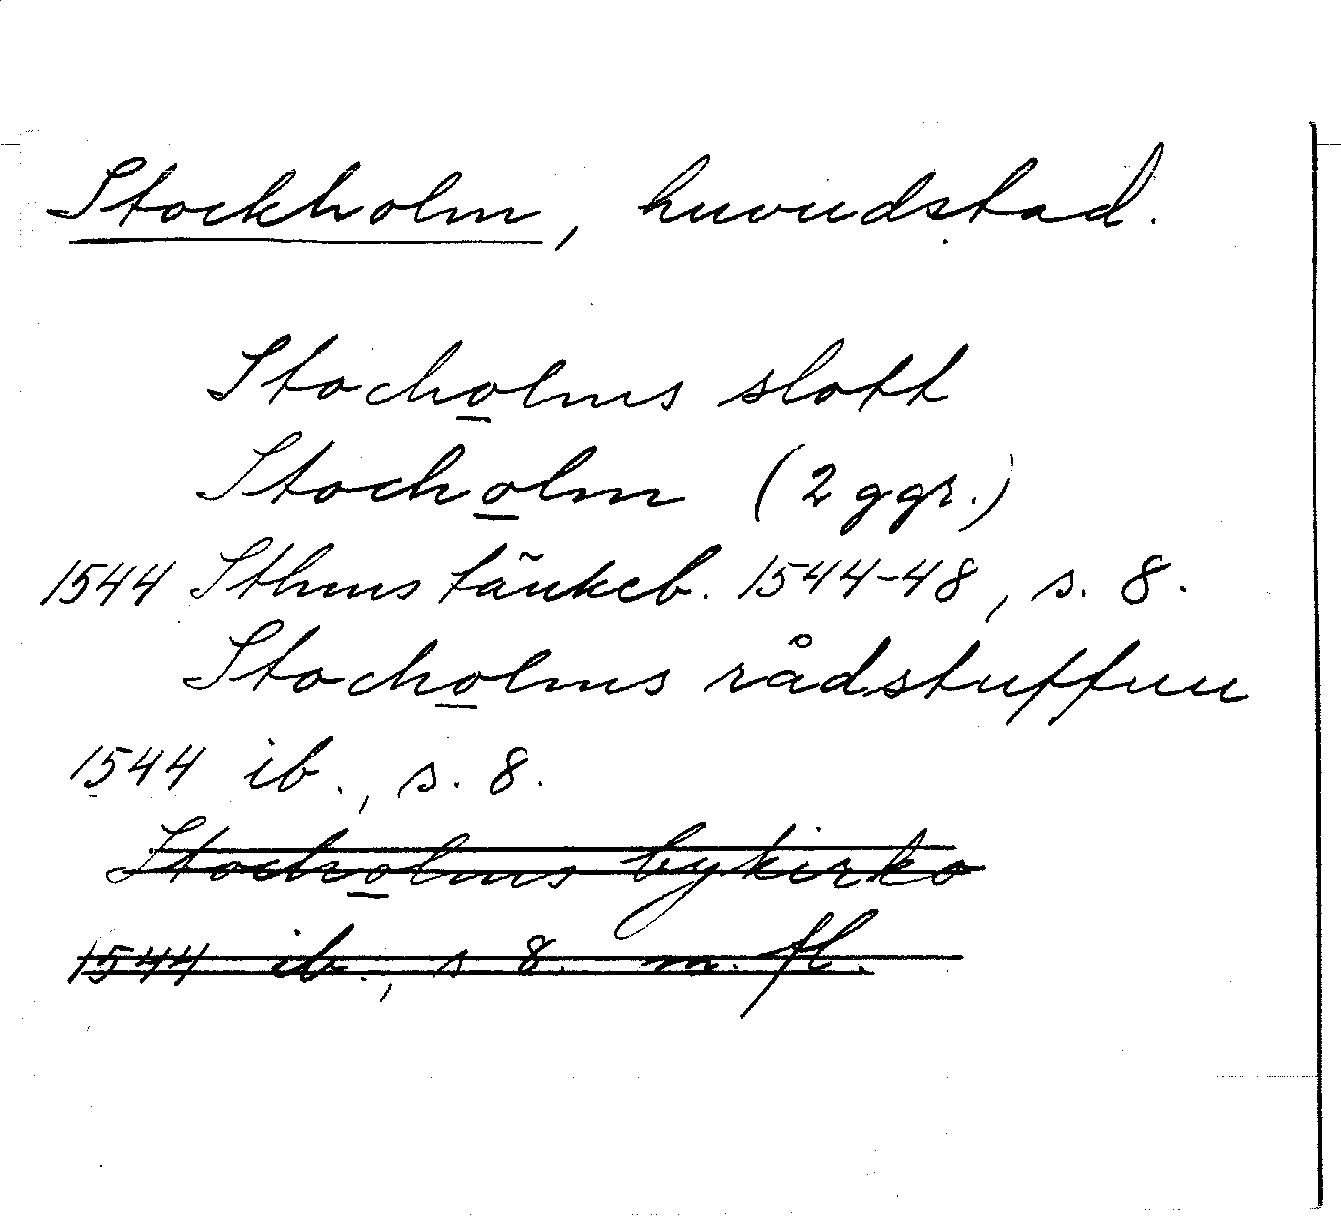 Stockholm, huvudstad.
Stocholms slott
Stocholm (2 ggr.)
1544 Sthms tänkeb. 1544-48, s. 8.
Stocholms rådstuffuu
1544 ib., s. 8.
Stocholms bykirko
1544 ib., s 8. m. fl.